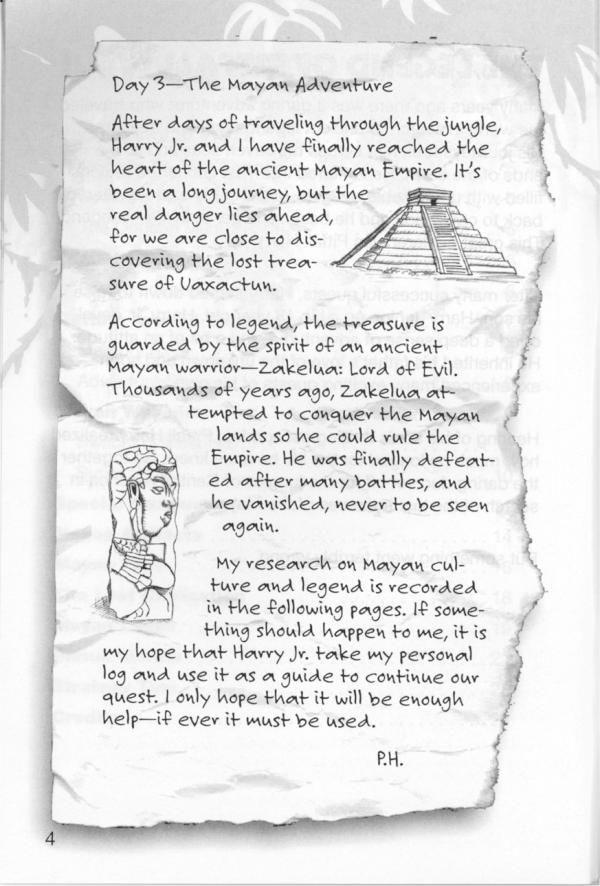 Day 3—The Mayan Adventure
After days of traveling through the jungle,
Harry Jr. and I have finally reached the
heart of the ancient Mayan Empire. It's
been a long journey, but the
real danger lies ahead,
for we are close to dis-
covering the lost trea-
sure of Uaxactun.
According to legend, the treasure is
guarded by the spirit of an ancient
Mayan warrior—Zakelua: Lord of Evil.
Thousands of years ago, Zakelua at-
tempted to conquer the Mayan
lands so he could rule the
Empire. He was finally defeat-
ed after many battles, and
he vanished, never to be seen
again.
My research on Mayan cul-
ture and legend is recorded
in the following pages. If some-
thing should happen to me, it is
my hope that Harry Jr. take my personal
log and use it as a guide to continue our
quest. I only hope that it will be enough
help—if ever it must be used.
P.H.
4